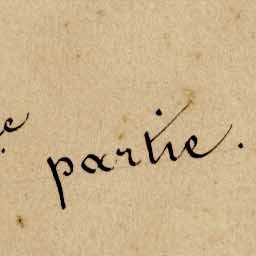 e partie.